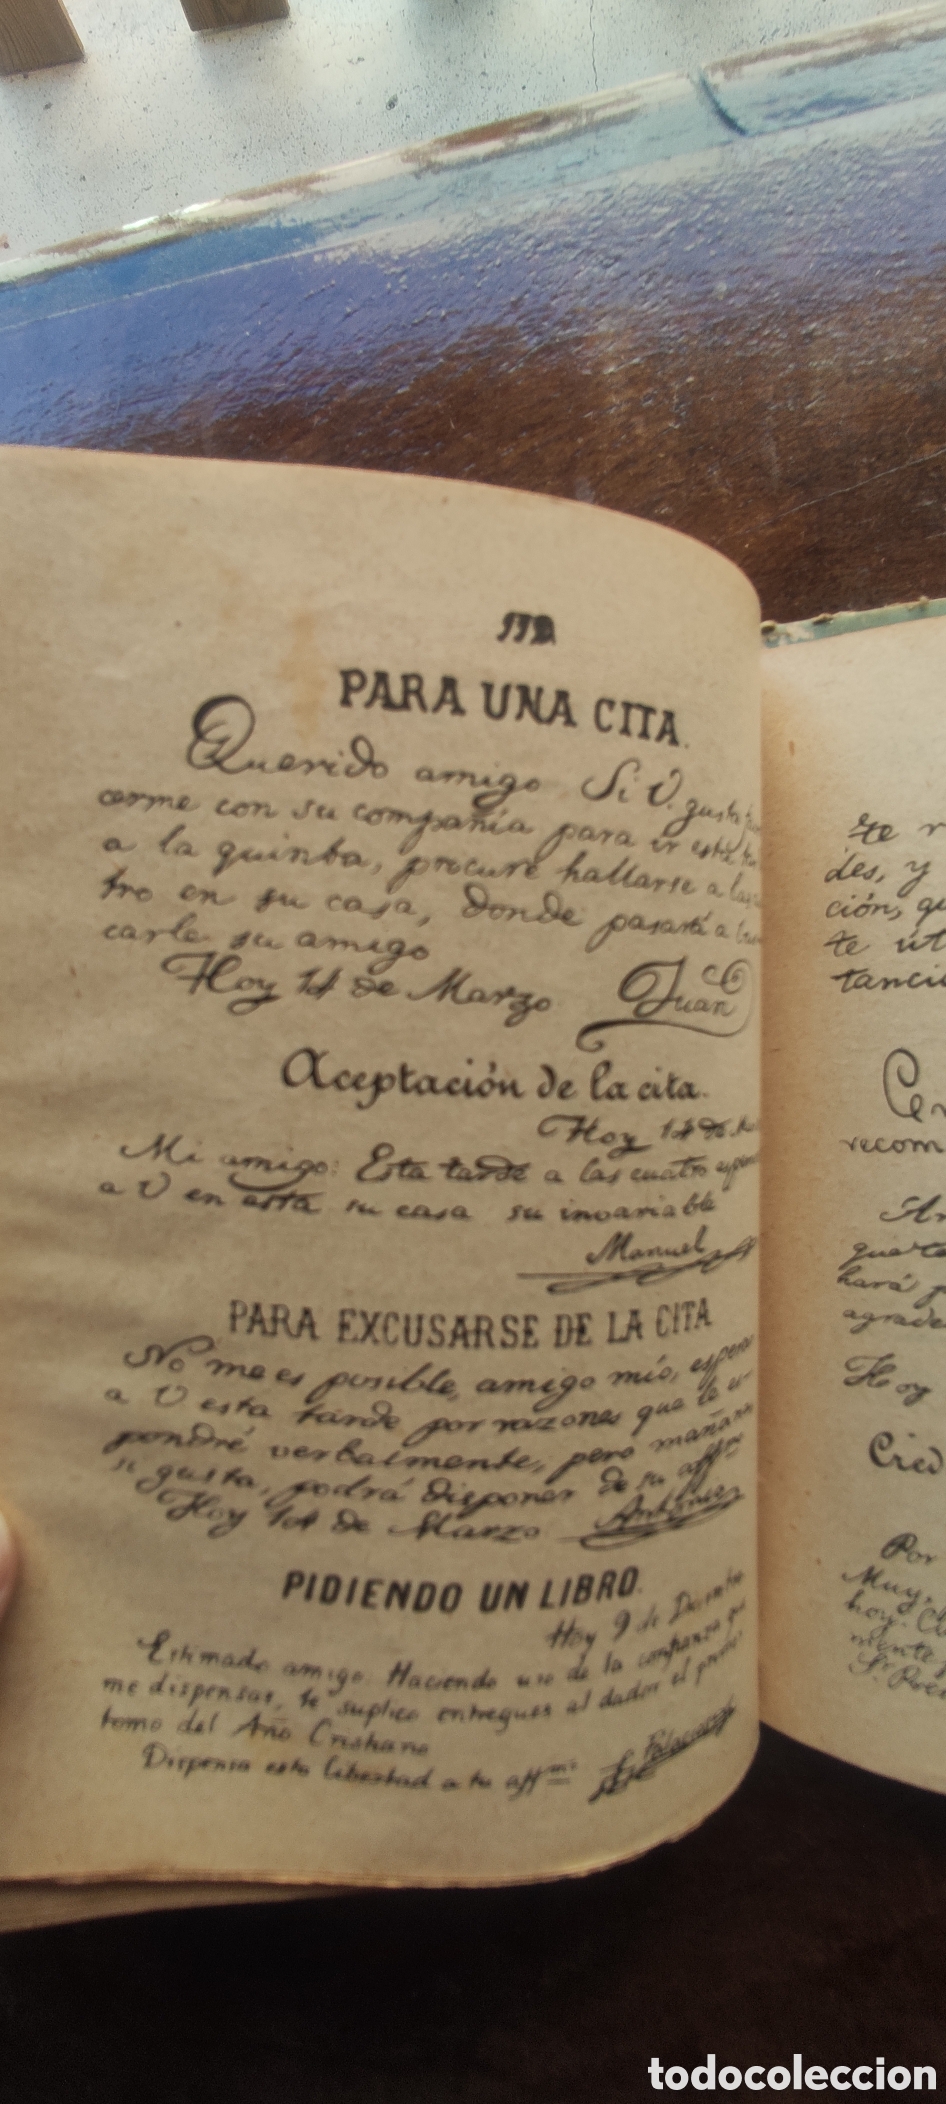 PARA UNA CITA.
Querido amigo Si V. gusta
cerme con su compañía para ir esta
a la quinta, procure hallarse a las
tro en su casa, donde pasará a
carle su amigo
Hoy 14 de Marzo Juan
Aceptación de la cita.
Hoy 14 de
Mi amigo: Esta tarde a las cuatro
a V en esta su casa su invariable
Manuel
PARA EXCUSARSE DE LA CITA
No me es posible, amigo mío,
a V esta tarde por razones que le
pondré verbalmente, pero mañana
si gusta, podrá disponer de su affmo
Hoy 14 de Marzo Antonio
PIDIENDO UN LIBRO.
Hoy 9 de Diciembre
Estimado amigo: Haciendo uso de la confianza que
me dispensas, te suplico entregues al dador el primer
tomo del Año Cristiano
Dispensa esta libertad a tu affmo
te
des, y
ción,
te
tancia
recom
que te
hará
agrade
Hoy
Por
Muy
hoy.
mente
todocoleccion